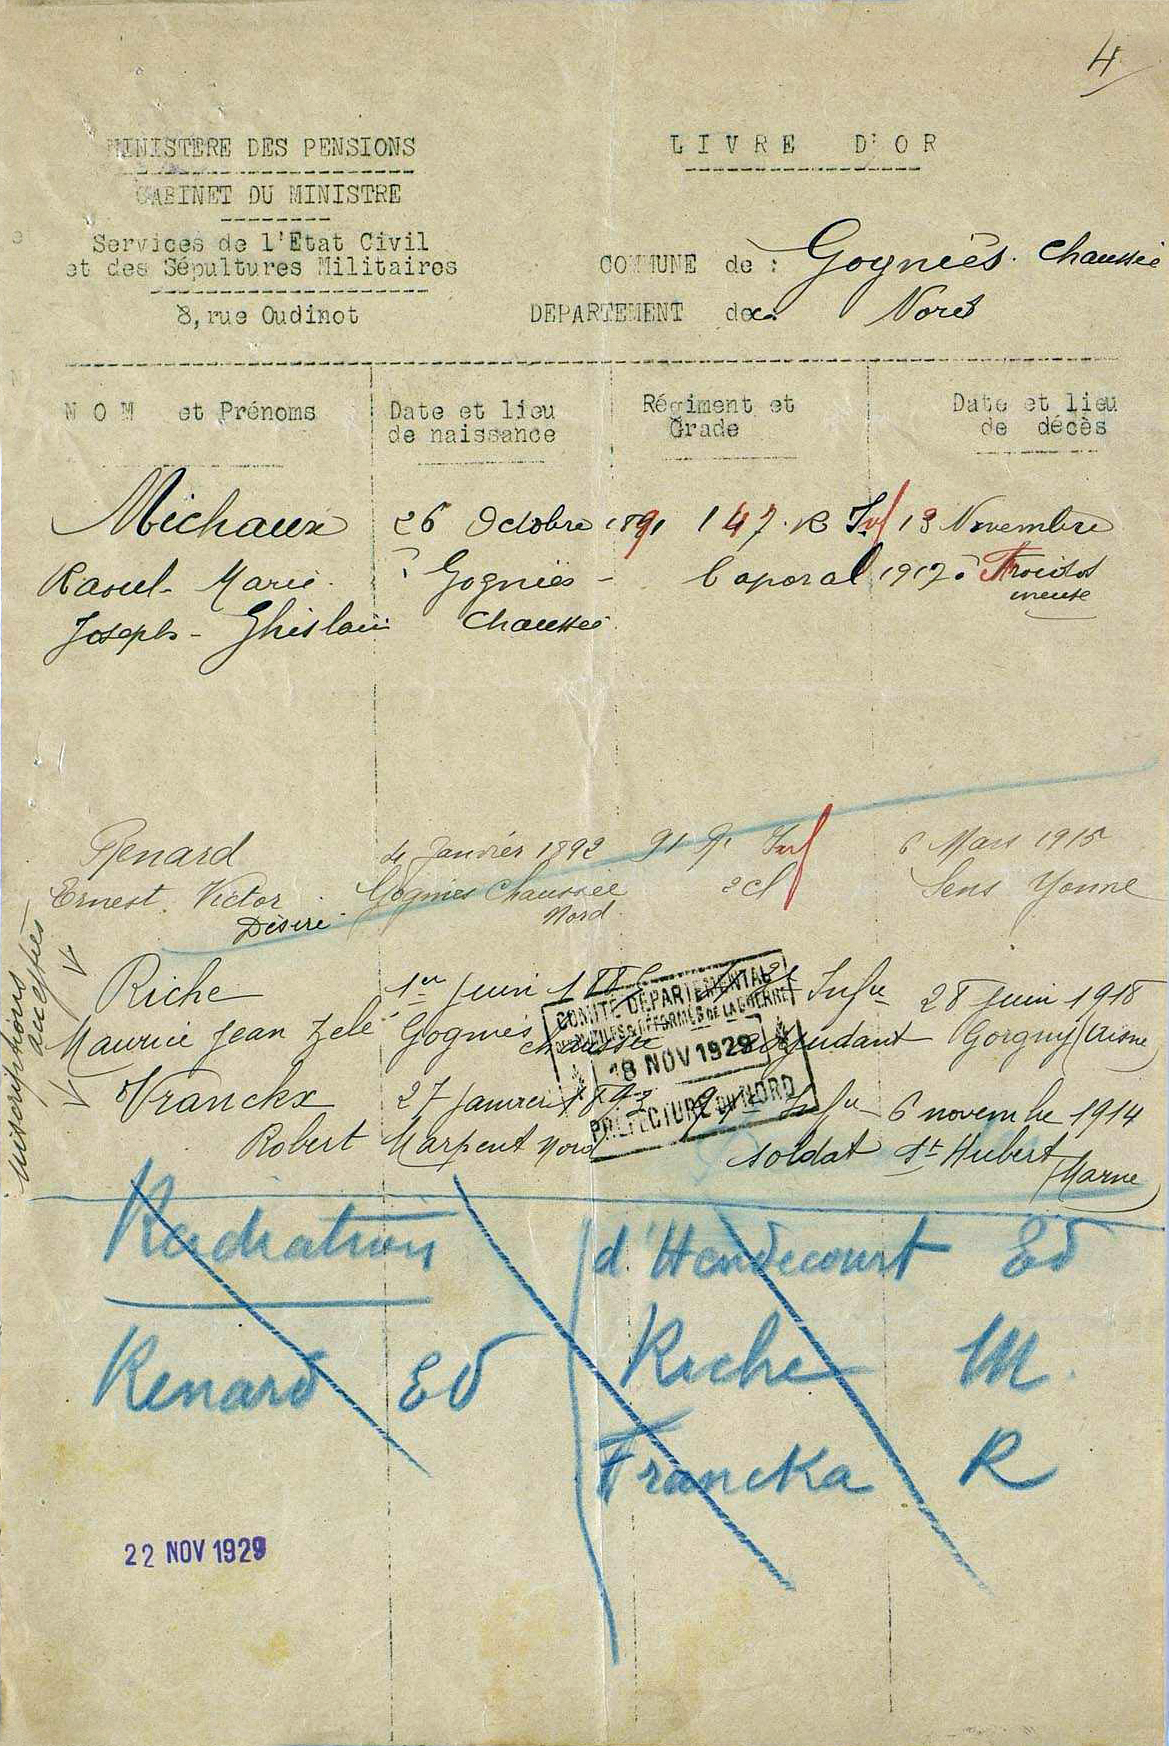 4
MINISTERE DES PENSIONS
CABINET DU MINISTRE
Services de l'Etat Civil
et des Sépultures Militaires
8, rue Oudinot
LIVRE D'OR
COMMUNE de : Gogniés. Chaussée
DEPARTEMENT de Nord
NOM et Prénoms
Date et lieu
de naissance
Régiment et
Grade
Date et lieu
de décès
Michaux 26 Octobre 1891 147. R Inf 13 Novembre
Raoul-Marie. Gogniés - Caporal 1917 à Froidos
Joseph-Ghislain Chaussée meuse
Renard Janvier 1892 91 R. Inf 6 Mars 1915
Ernest. Victor Gognies Chaussée 2 cl Sens Yonne
Désiré. Nord
inscriptions
acceptées
Riche 1er juin Infie 28 juin 1918
Maurice Jean Zélé Gogniés adjudant Gorguy (Aisne)
chaussée
Vranckx 27 janvier Infie 6 novembre 1914
Robert Marpent Nord soldat St Hubert
(Marne)
COMITÉ DÉPARTEMENTAL
DES MUTILÉS & RÉFORMÉS DE LA GUERRE
18 NOV 1929
PRÉFECTURE DU NORD
Radiation
Renard Ed
d'Hendecourt Ed
Riche M.
Francka R
22 NOV 1929